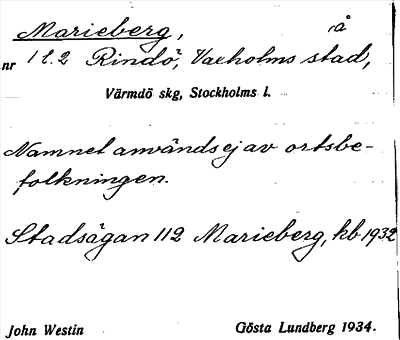 Marieberg, å
nr 1 l. 2 Rindö, Vaxholms stad,
Värmdö skg, Stockholms l.
Namnet användsej av ortsbe-
folkningen.
Stadsägan 112 Marieberg, kb 1932
John Westin Gösta Lundberg 1934.